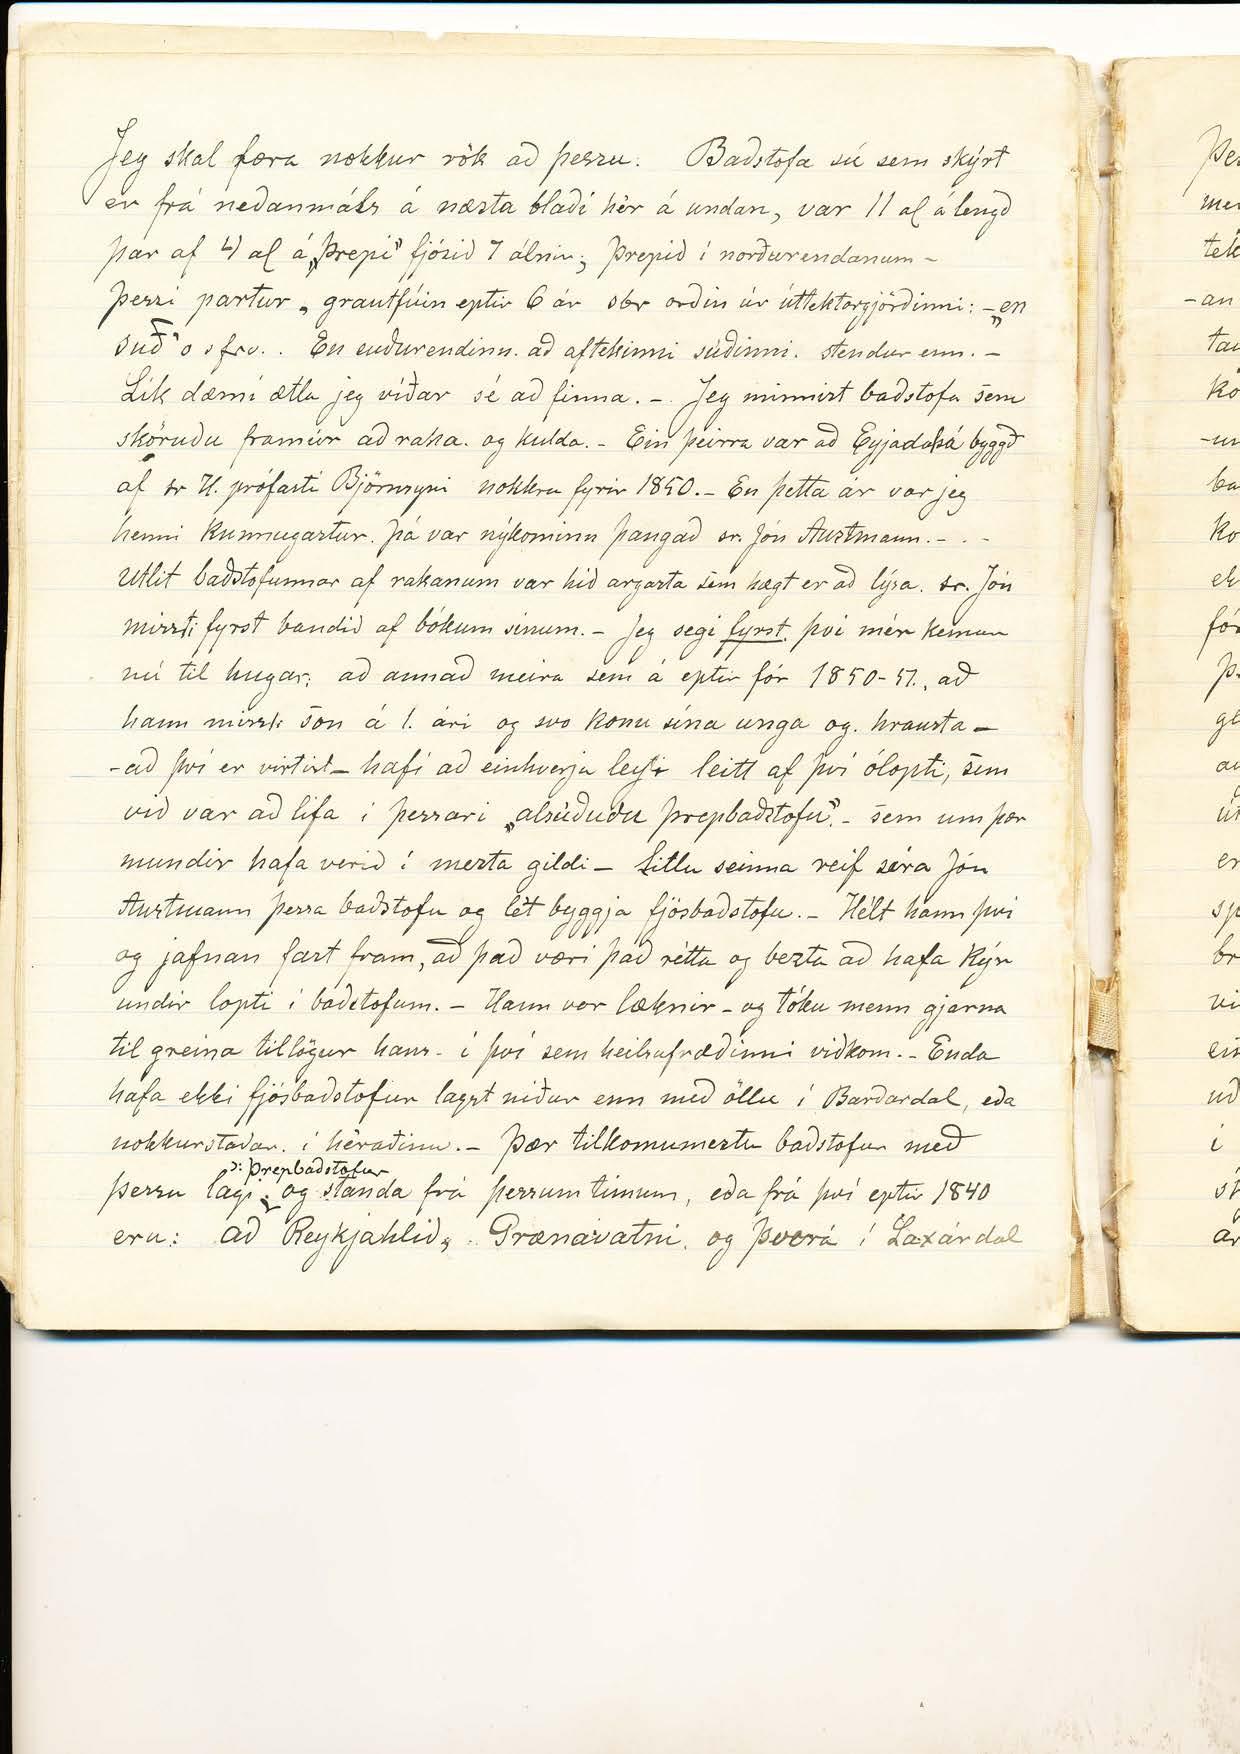 Jeg skal færa nokkur rök að þessu. Baðstofa sú sem skýrt
er frá neðanmáls á næsta blaði hèr á undan, var 11 al á lengd
þar af 4 al á „Þrepi“ fjósið 7 álnir; Þrepið í norðurendanum –
þessi partur „grautfúin eptir 6 ár sbr orðin úr úttektargjörðinni: – „en
súð“ o s frv. . En suðurendinn. að aftekinni súðinni. stendur enn. –
Lík dæmi ætla jeg víðar sé að finna. – Jeg minnist baðstofa sem
sköruðu framúr að raka. og kulda. – Ein þeirra var að Eyjadalsá byggð
af sr H. prófasti Björnsyni nokkru fyrir 1850. – En þetta ár var jeg
henni kunnugastur. þá var nýkominn þangað sr. Jón Austmann. – . –
Utlit baðstofunnar af rakanum var hið argasta sem hægt er að lýsa. sr. Jón
missti fyrst bandið af bókum sínum. – Jeg segi fyrst. því mér kemur
nú til hugar: að annað meira sem á eptir fór 1850-51., að
hann missti son á 1. ári og svo konu sína unga og. hrausta –
– að því er virtist – hafi að einhverju leyti leitt af því ólopti, sem
við var að lifa í þessari „alsúðuðu þrepbaðstofu“. – sem um þær
mundir hafa verið í mesta gildi – Litlu seinna reif séra Jón
Austmann þessa baðstofu og lét byggja fjósbaðstofu. – Hélt hann því
og jafnan fast fram, að það væri það rétta og bezta að hafa kýr
undir lopti í baðstofum. – Hann var læknir – og tóku menn gjarna
til greina tillögur hans – í því sem heilsufræðinni viðkom. – Enda
hafa ekki fjósbaðstofur lagst niður enn með öllu í Bárðardal, eða
nokkurstaðar. í héraðinu. – Þær tilkomumestu baðstofur með
ɔ: Þrepbaðstofur
þessu lagi; og standa frá þessum tímum, eða frá því eptir 1840
eru: að Reykjahlíð, Grænavatni. og Þverá í Laxárdal